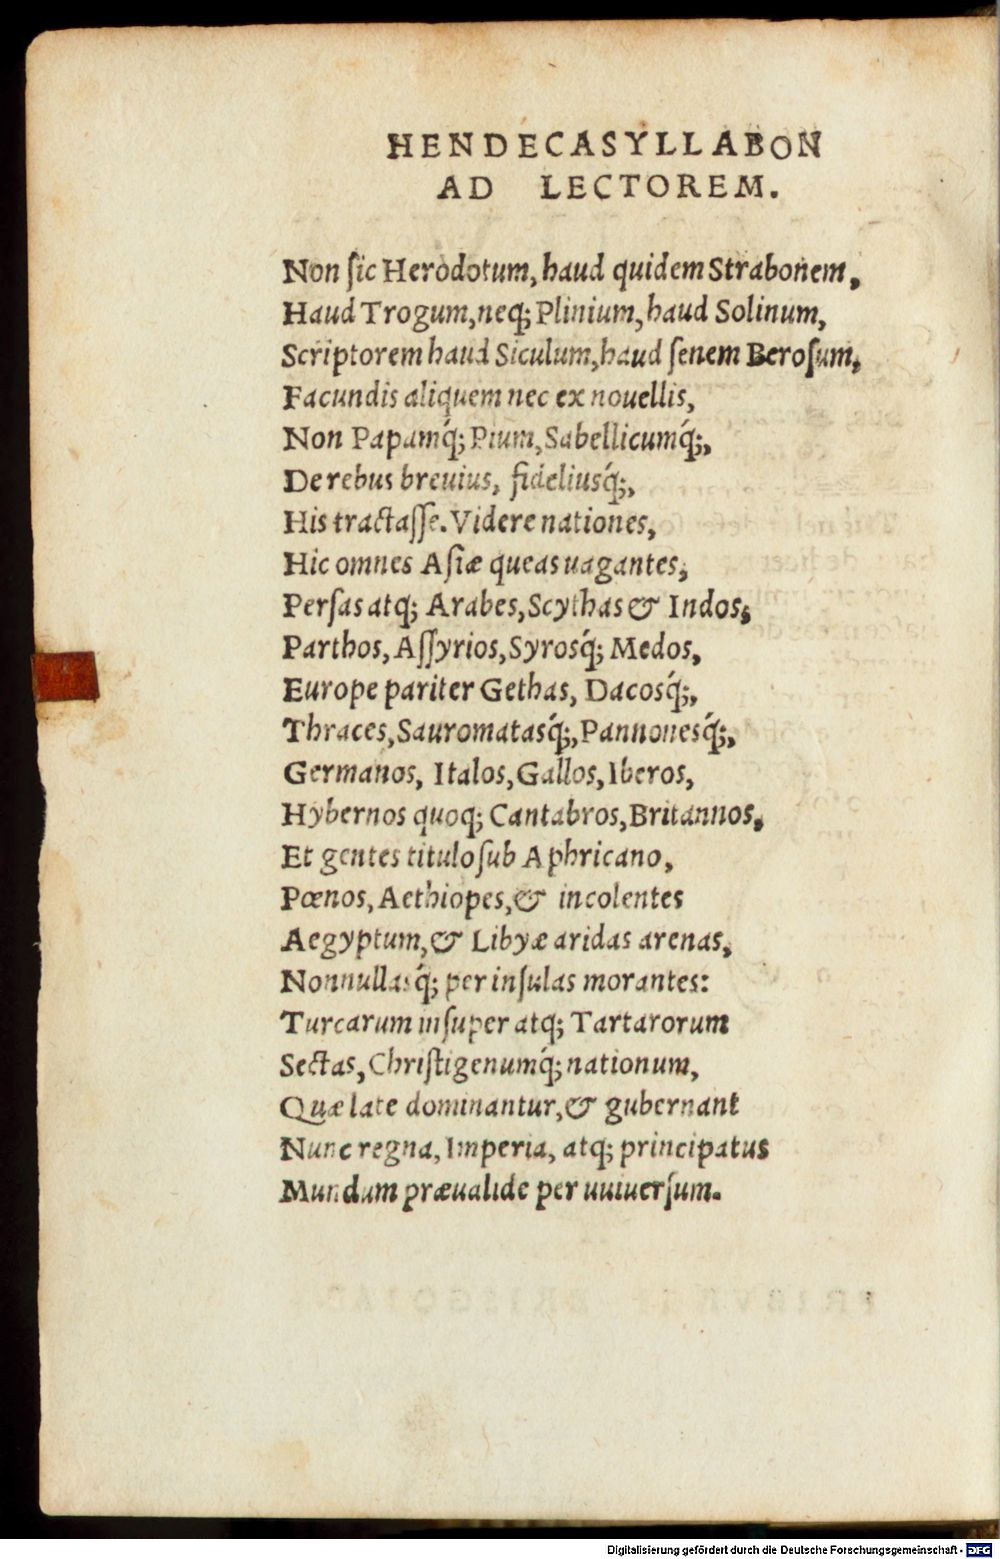 HENDECASYLLABON
AD LECTOREM.
Non ſic Herodotum, haud quidem Strabonem,
Haud Trogum, neq; Plinium, haud Solinum,
Scriptorem haud Siculum, haud ſenem Beroſum,
Facundis aliquem nec ex nouellis,
Non Papamq́; Pium, Sabellicumq́;,
De rebus breuius, fideliusq́;,
His tractaſſe. Videre nationes,
Hic omnes Aſiæ queas uagantes,
Perſas atq; Arabes, Scythas & Indos,
Parthos, Aſſyrios, Syrosq́; Medos,
Europe pariter Gethas, Dacosq́;,
Thraces, Sauromatasq́;, Pannonesq́;,
Germanos, Italos, Gallos, Iberos,
Hybernos quoq; Cantabros, Britannos,
Et gentes titulo ſub Aphricano,
Pœnos, Aethiopes, & incolentes
Aegyptum, & Libyæ aridas arenas,
Nonnullasq́; per inſulas morantes:
Turcarum inſuper atq; Tartarorum
Sectas, Chriſtigenumq́; nationum,
Quæ late dominantur, & gubernant
Nunc regna, Imperia, atq; principatus
Mundum præualide per uniuerſum.
Digitalisierung gefördert durch die Deutsche Forschungsgemeinschaft - DFG